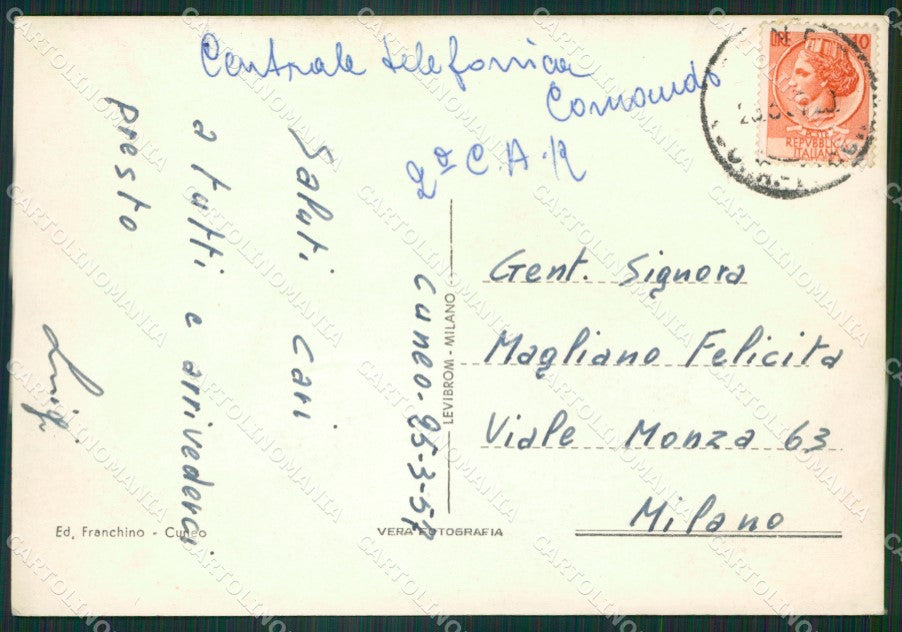 Centrale telefonica
Comando
2º C.A.R
Saluti cari
a tutti e arrivederci
presto
Luigi
Cuneo-25-3-57
Gent. Signora
Magliano Felicita
Viale Monza 63
Milano
LEVIBROM - MILANO
Ed. Franchino - Cuneo
VERA FOTOGRAFIA
LIRE 10
REPVBBLICA
ITALIANA
CARTOLINOMANIA